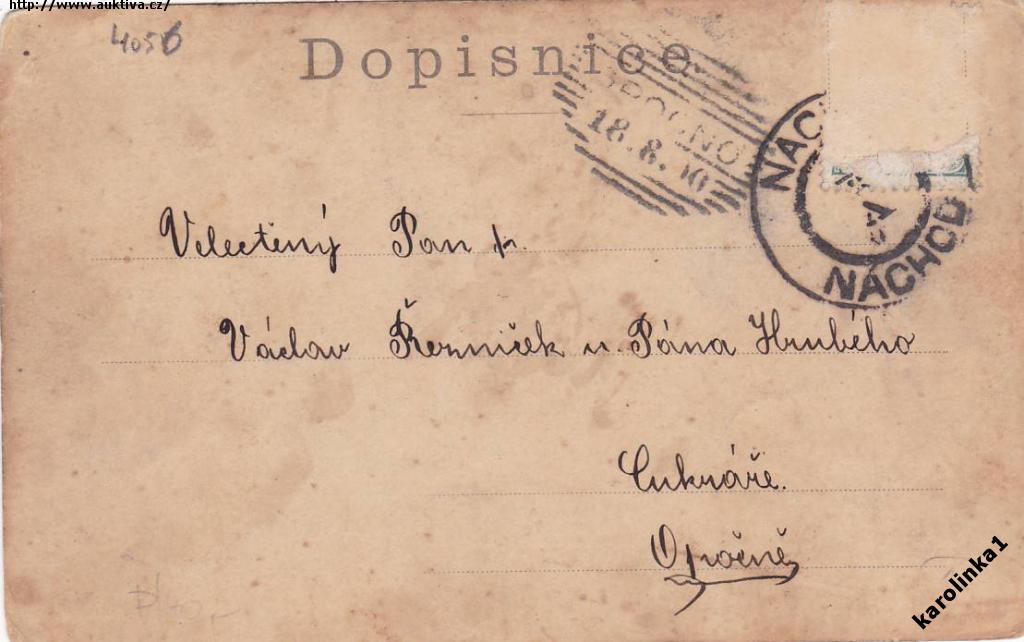 http://www.auktiva.cz/
4056
Dopisnice
OPOČNO
18.8.00
NÁCHOD
Velectěný Pan
Václav Řezníček u Pána Hrubého
Cukráře.
Opočně
karolinka1